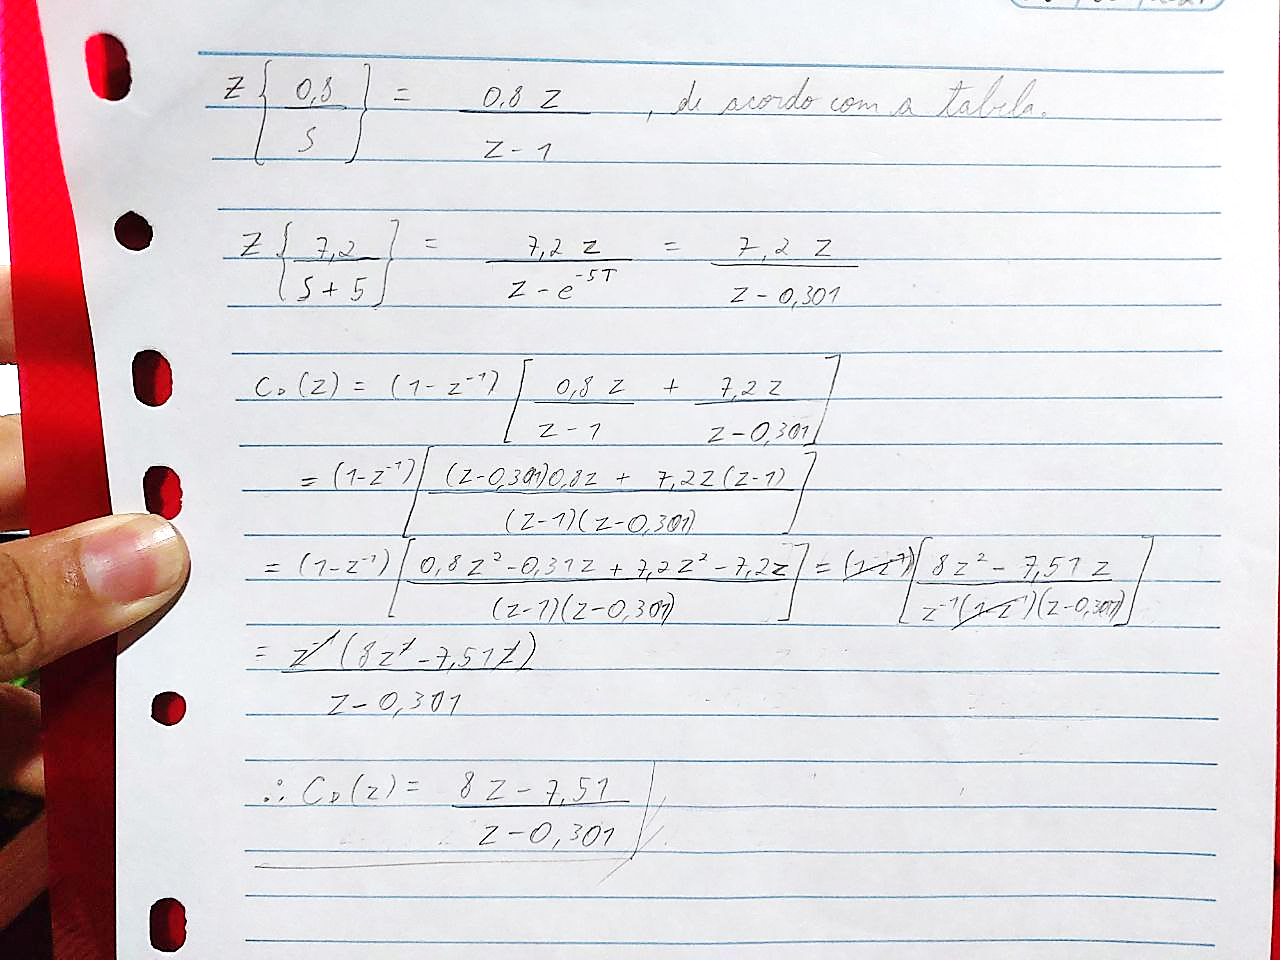 Z { 0,8 / s } = 0,8 z / z - 1 , de acordo com a tabela.
Z { 7,2 / s + 5 } = 7,2 z / z - e^-5T = 7,2 z / z - 0,301
C_D(z) = (1 - z^-1) [ 0,8 z / z - 1 + 7,2 z / z - 0,301 ]
= (1-z^-1) [ (z-0,301)0,8z + 7,2z(z-1) / (z-1)(z-0,301) ]
= (1-z^-1) [ 0,8z² - 0,31z + 7,2z² - 7,2z / (z-1)(z-0,301) ] = (1-z^-1) [ 8z² - 7,51 z / z^-1(1-z^-1)(z-0,301) ]
= z^-1 (8z² - 7,51z) / z - 0,301
∴ C_D(z) = 8z - 7,51 / z - 0,301